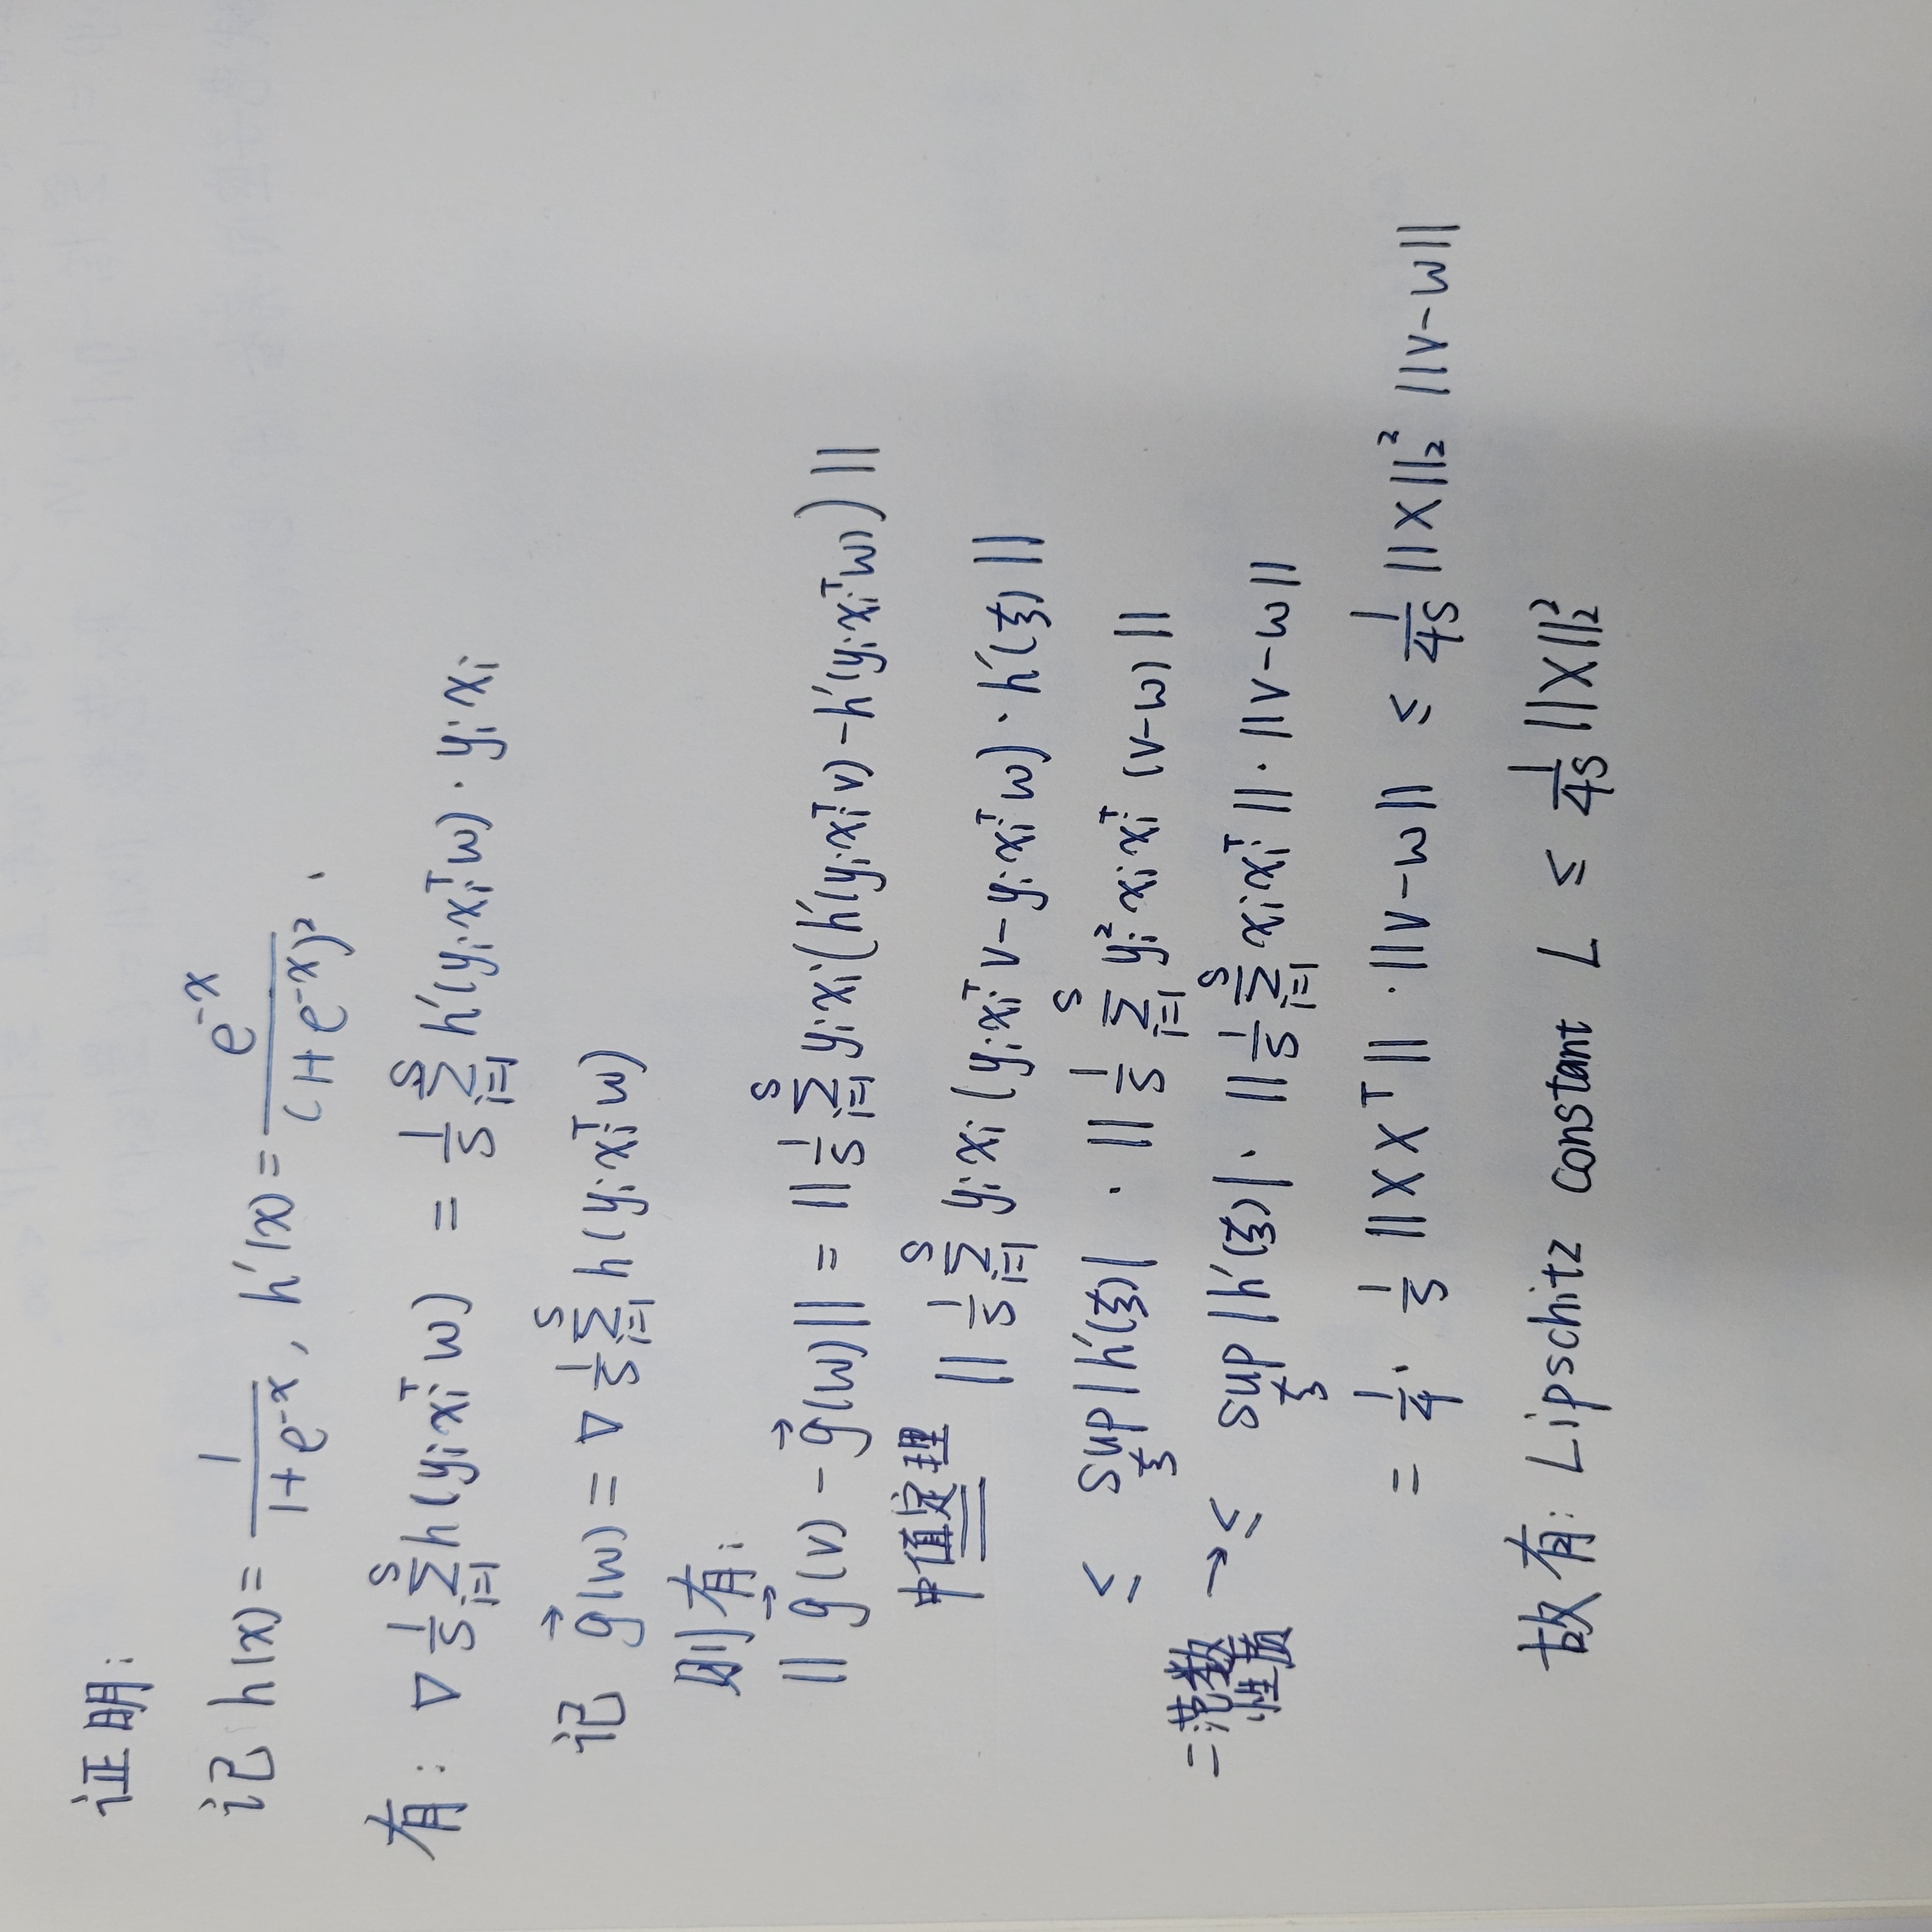 证明:
记 h(x) = 1/(1+e^{-x}), h'(x) = e^{-x}/(1+e^{-x})².
有: ∇ 1/S ∑_{i=1}^{S} h(y_i x_i^T w) = 1/S ∑_{i=1}^{S} h'(y_i x_i^T w) · y_i x_i
记 g⃗(w) = ∇ 1/S ∑_{i=1}^{S} h(y_i x_i^T w)
则有:
|| g⃗(v) - g⃗(w) || = || 1/S ∑_{i=1}^{S} y_i x_i (h'(y_i x_i^T v) - h'(y_i x_i^T w)) ||
中值定理 = || 1/S ∑_{i=1}^{S} y_i x_i (y_i x_i^T v - y_i x_i^T w) · h'(ξ) ||
≤ sup_ξ |h'(ξ)| · || 1/S ∑_{i=1}^{S} y_i² x_i x_i^T (v-w) ||
二范数性质 → ≤ sup_ξ |h'(ξ)| · || 1/S ∑_{i=1}^{S} x_i x_i^T || · ||v-w||
= 1/4 · 1/S ||XX^T|| · ||v-w|| ≤ 1/4S ||X||₂² ||v-w||
故有: Lipschitz constant L ≤ 1/4S ||X||₂²